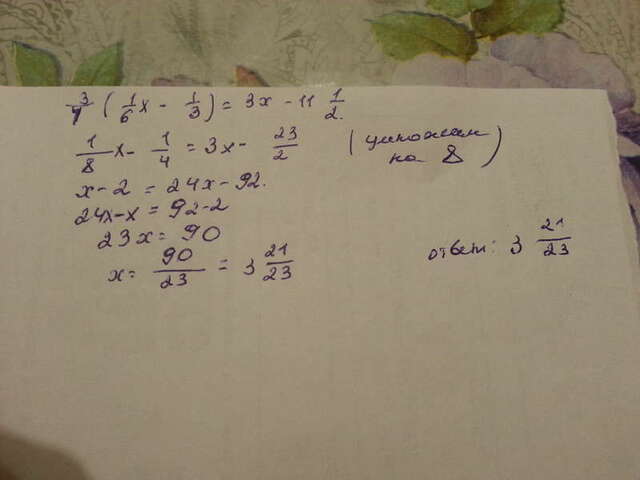 3/4 (1/6 x - 1/3) = 3x - 11 1/2.
1/8 x - 1/4 = 3x - 23/2 (умножаем на 8)
x - 2 = 24x - 92.
24x - x = 92 - 2
23x = 90
x = 90/23 = 3 21/23
ответ: 3 21/23